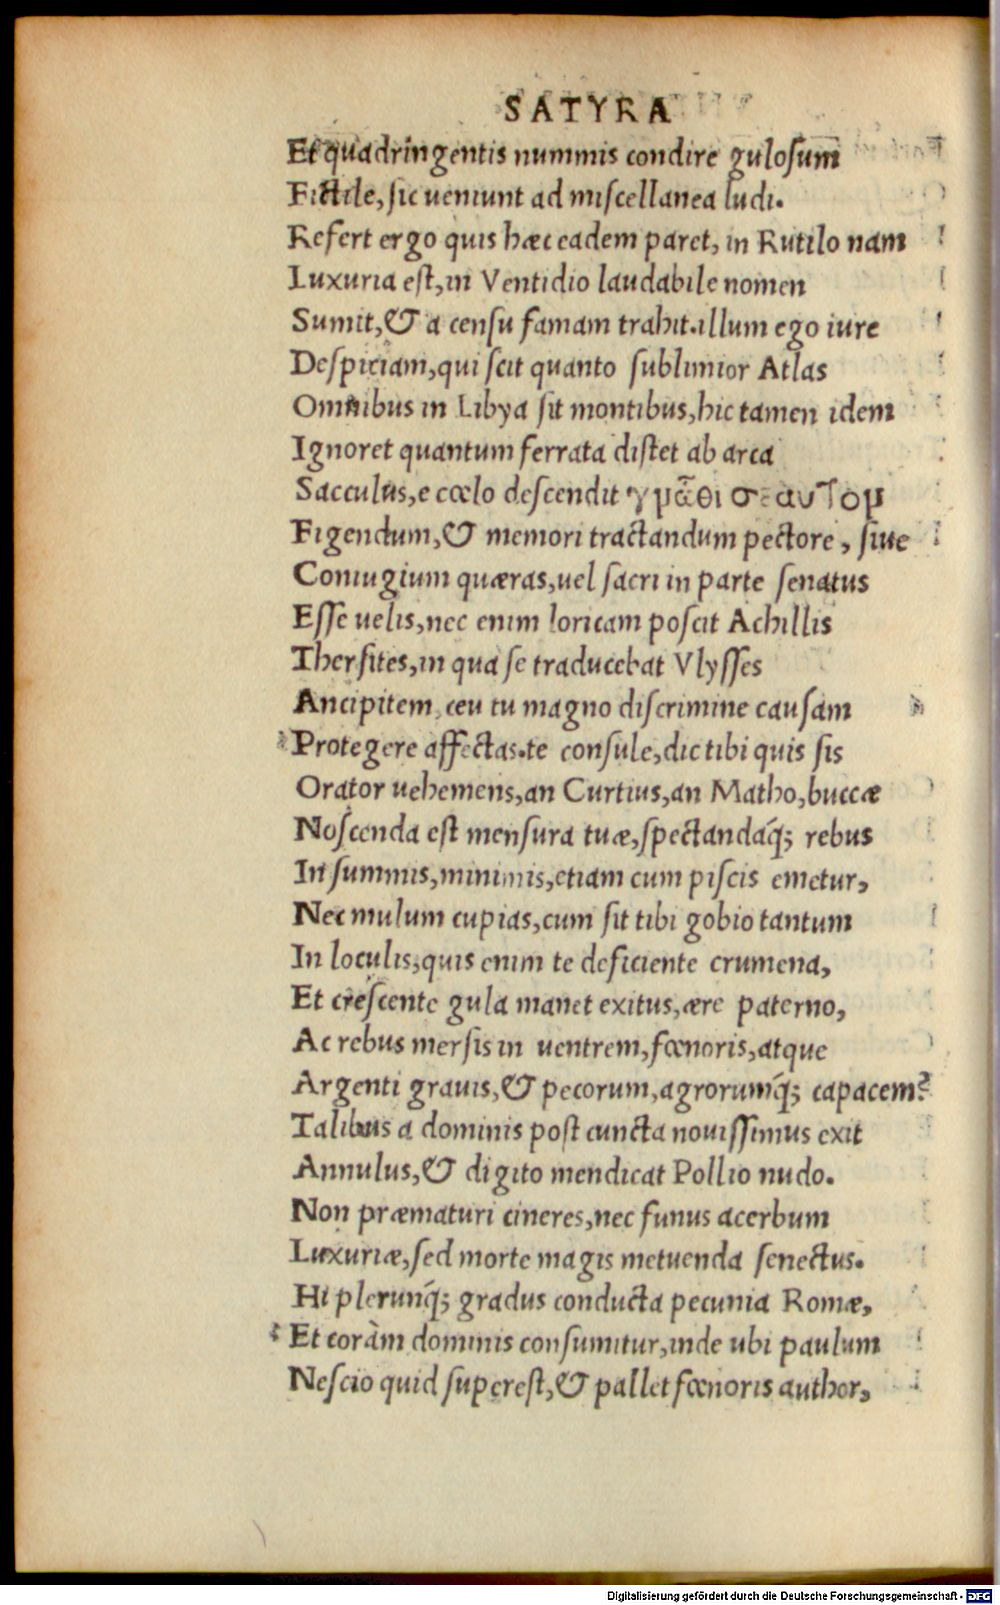 SATYRA
Et quadringentis nummis condire gulosum
Fictile, sic ueniunt ad miscellanea ludi.
Refert ergo quis hæc eadem paret, in Rutilo nam
Luxuria est, in Ventidio laudabile nomen
Sumit, & a censu famam trahit. illum ego iure
Despiciam, qui scit quanto sublimior Atlas
Omnibus in Libya sit montibus, hic tamen idem
Ignoret quantum ferrata distet ab arca
Sacculus, e cœlo descendit γνῶθι σεαυτόν
Figendum, & memori tractandum pectore, siue
Coniugium quæras, uel sacri in parte senatus
Esse uelis, nec enim loricam poscit Achillis
Thersites, in qua se traducebat Vlysses
Ancipitem, ceu tu magno discrimine causam
Protegere affectas. te consule, dic tibi quis sis
Orator uehemens, an Curtius, an Matho, buccæ
Noscenda est mensura tuæ, spectandaq́; rebus
In summis, minimis, etiam cum piscis emetur,
Nec mulum cupias, cum sit tibi gobio tantum
In loculis, quis enim te deficiente crumena,
Et crescente gula manet exitus, ære paterno,
Ac rebus mersis in uentrem, fœnoris, atque
Argenti grauis, & pecorum, agrorumq́; capacem?
Talibus a dominis post cuncta nouissimus exit
Annulus, & digito mendicat Pollio nudo.
Non præmaturi cineres, nec funus acerbum
Luxuriæ, sed morte magis metuenda senectus.
Hi plerunq́; gradus conducta pecunia Romæ,
Et coràm dominis consumitur, inde ubi paulum
Nescio quid superest, & pallet fœnoris author,
Digitalisierung gefördert durch die Deutsche Forschungsgemeinschaft - DFG